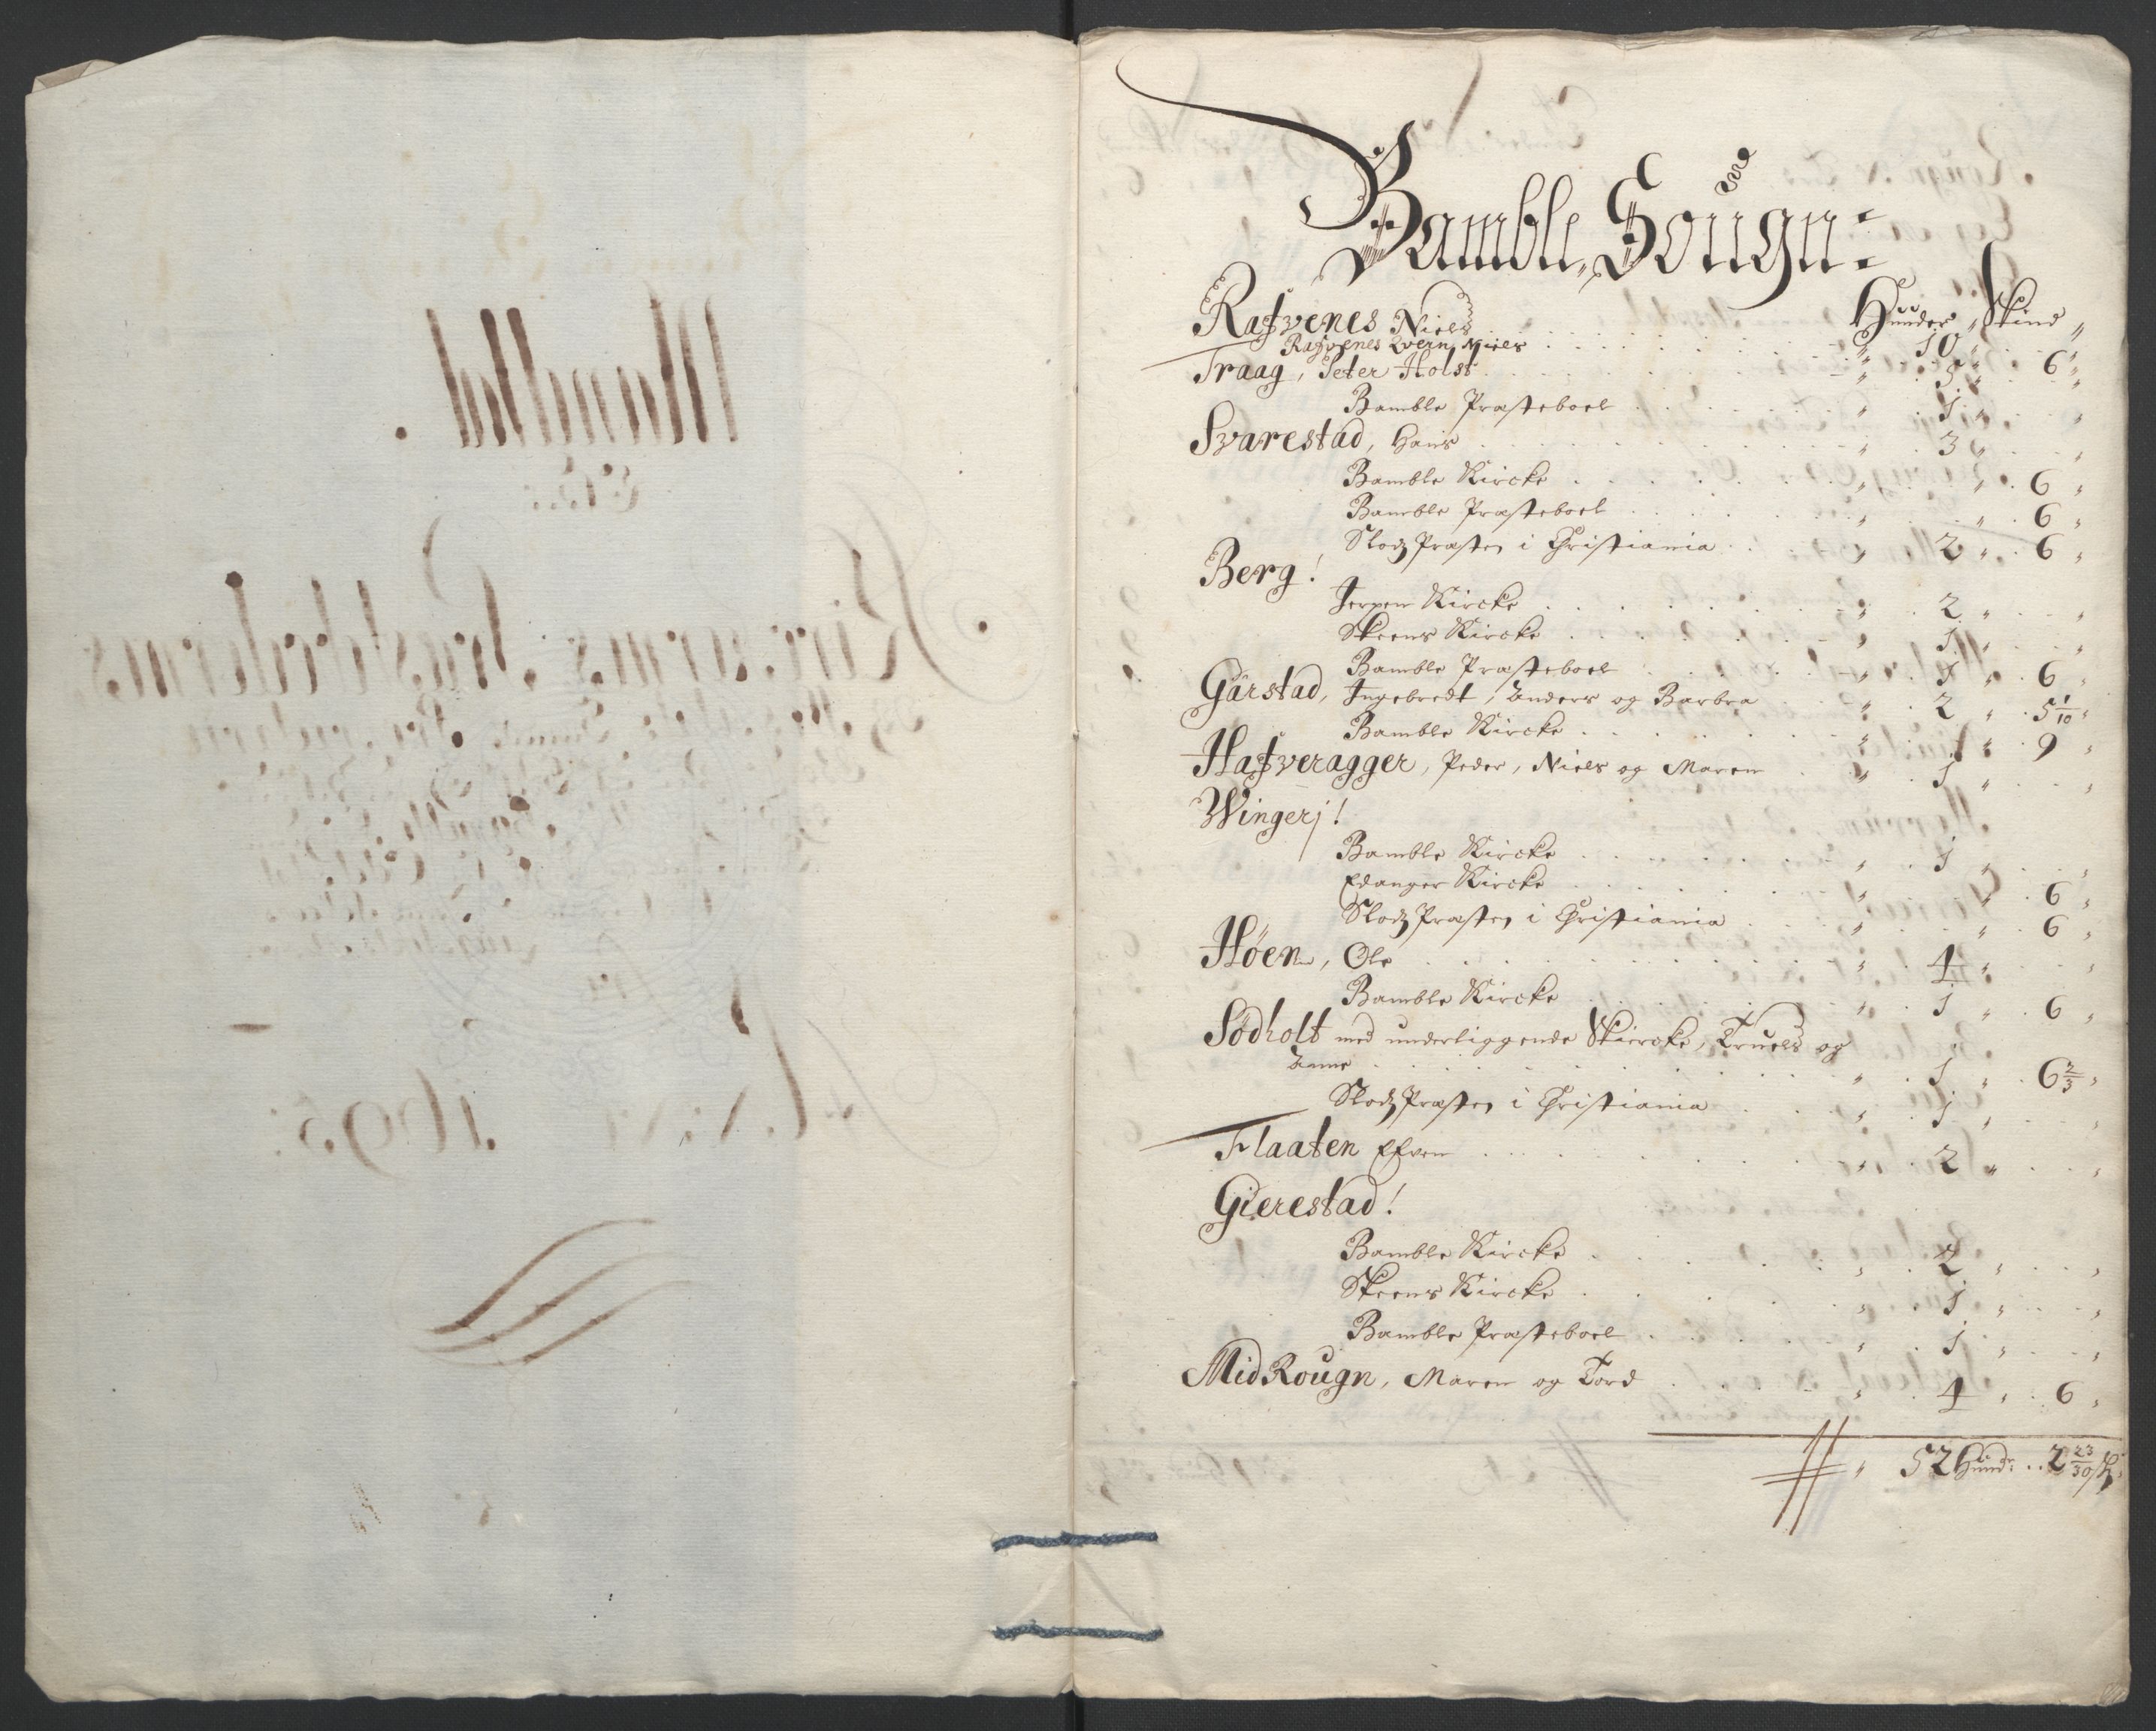 Bamble Sougn:
Hunder " Skind "
Rafvenes Niels " 10 "
Rafvenes Qvern, Niels " " 6 "
Traag, Peter Holst " 5 "
Bamble Præsteboel " 1 "
Svarestad, Hans " 3 "
Bamble Kircke " " 6 "
Bamble Præsteboel " " 6 "
Slodz Præsten i Christiania " 2 " 6 "
Berg!
Jerpen Kircke " 2 "
Skeens Kircke " 1 "
Bamble Præsteboel " 1 " 6 "
Gårstad, Ingebredt, Anders og Barbra " 2 " 5 1/10 "
Bamble Kircke " 1 " 9 "
Hafveragger, Peder, Niels og Maren " 1 "
Wingerj!
Bamble Kircke " 1 "
Edanger Kircke " " 6 "
Slodz Præsten i Christiania " " 6 "
Höen, Ole " 4 "
Bamble Kircke " 1 " 6 "
Södholt med underliggende Skiercke, Truels og
Anne " 1 " 6 2/3 "
Slodz Præsten i Christiania " 1 "
Flaaten Efven " 2 "
Gierestad!
Bamble Kircke " 2 "
Skeens Kircke " 1 "
Bamble Præsteboel " 1 "
MidRougn, Maren og Tord " 4 " 6 "
" 52 Hund: 2 23/30 sk: